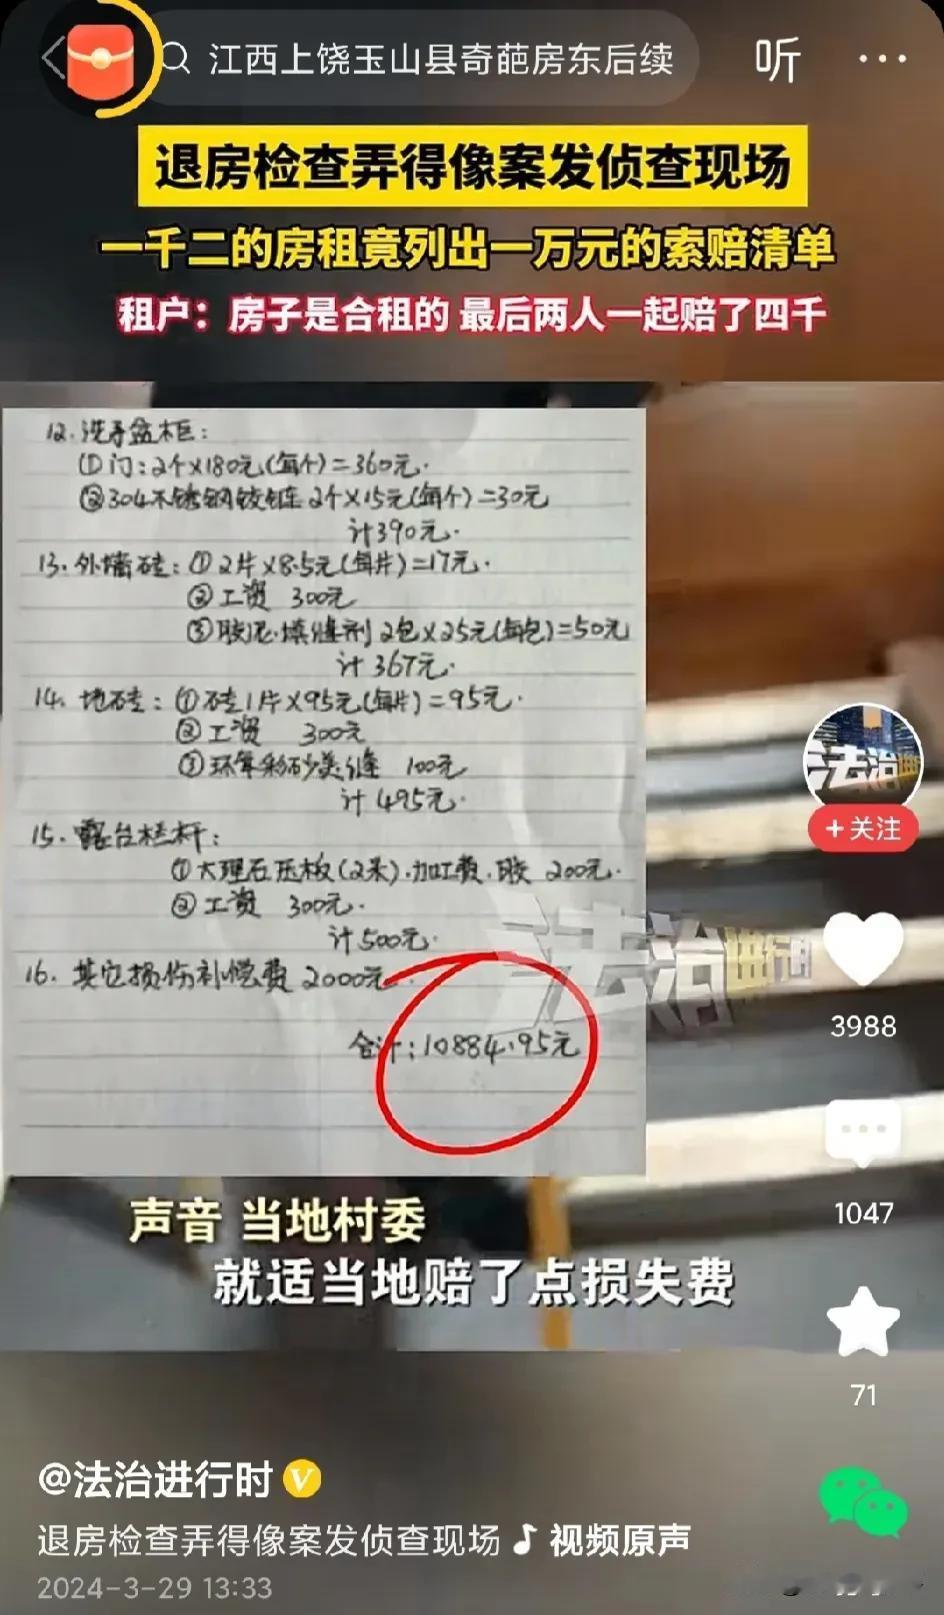 江西上饶玉山县奇葩房东后续
听
退房检查弄得像案发侦查现场
一千二的房租竟列出一万元的索赔清单
租户：房子是合租的 最后两人一起赔了四千
12.洗手盆柜：
①门：2个×180元(每个)=360元.
②304不锈钢铰链 2个×15元(每个)=30元
计390元.
13.外墙砖：①2片×8.5元(每片)=17元.
②工资 300元
③胶泥.填缝剂 2包×25元(每包)=50元
计367元.
14.地砖：①砖1片×95元(每片)=95元.
②工资 300元
③环氧彩砂美缝 100元
计495元.
15.露台栏杆：
①大理石压板(2条).加工费.胶 200元.
②工资 300元.
计500元.
16.其它损伤补偿费 2000元.
合计：10884.95元
法治进行时
法治进行时
+关注
3988
1047
71
声音 当地村委
就适当地赔了点损失费
@法治进行时
退房检查弄得像案发侦查现场 视频原声
2024-3-29 13:33